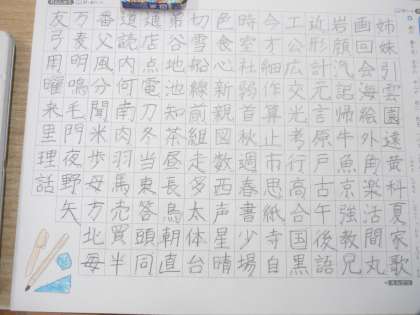 姉妹引雲園遠黄科夏家歌
画回会海絵外角楽活間丸
岩顔汽記帰牛魚京強教兄
近形計元言原戸古午後語
工公広交光考行高合国黒
今才細作算止市思紙寺自
時室社弱首秋週春書少場
色食心新親図数西声星晴
切雪船線前組走多太体台
谷地池知茶昼長鳥朝直
通店点電刀冬当東答頭同
道読内何南肉羽馬売買半
番父風分聞米歩母方北毎
万麦明鳴毛門夜野矢
友弓用曜来里理話